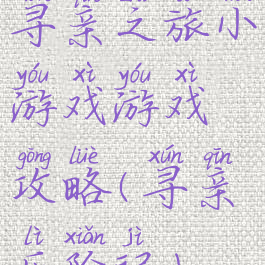 寻亲之旅小
yóu xì yóu xì
游戏游戏
gōng lüè xún qīn
攻略(寻亲
lì xiǎn jì